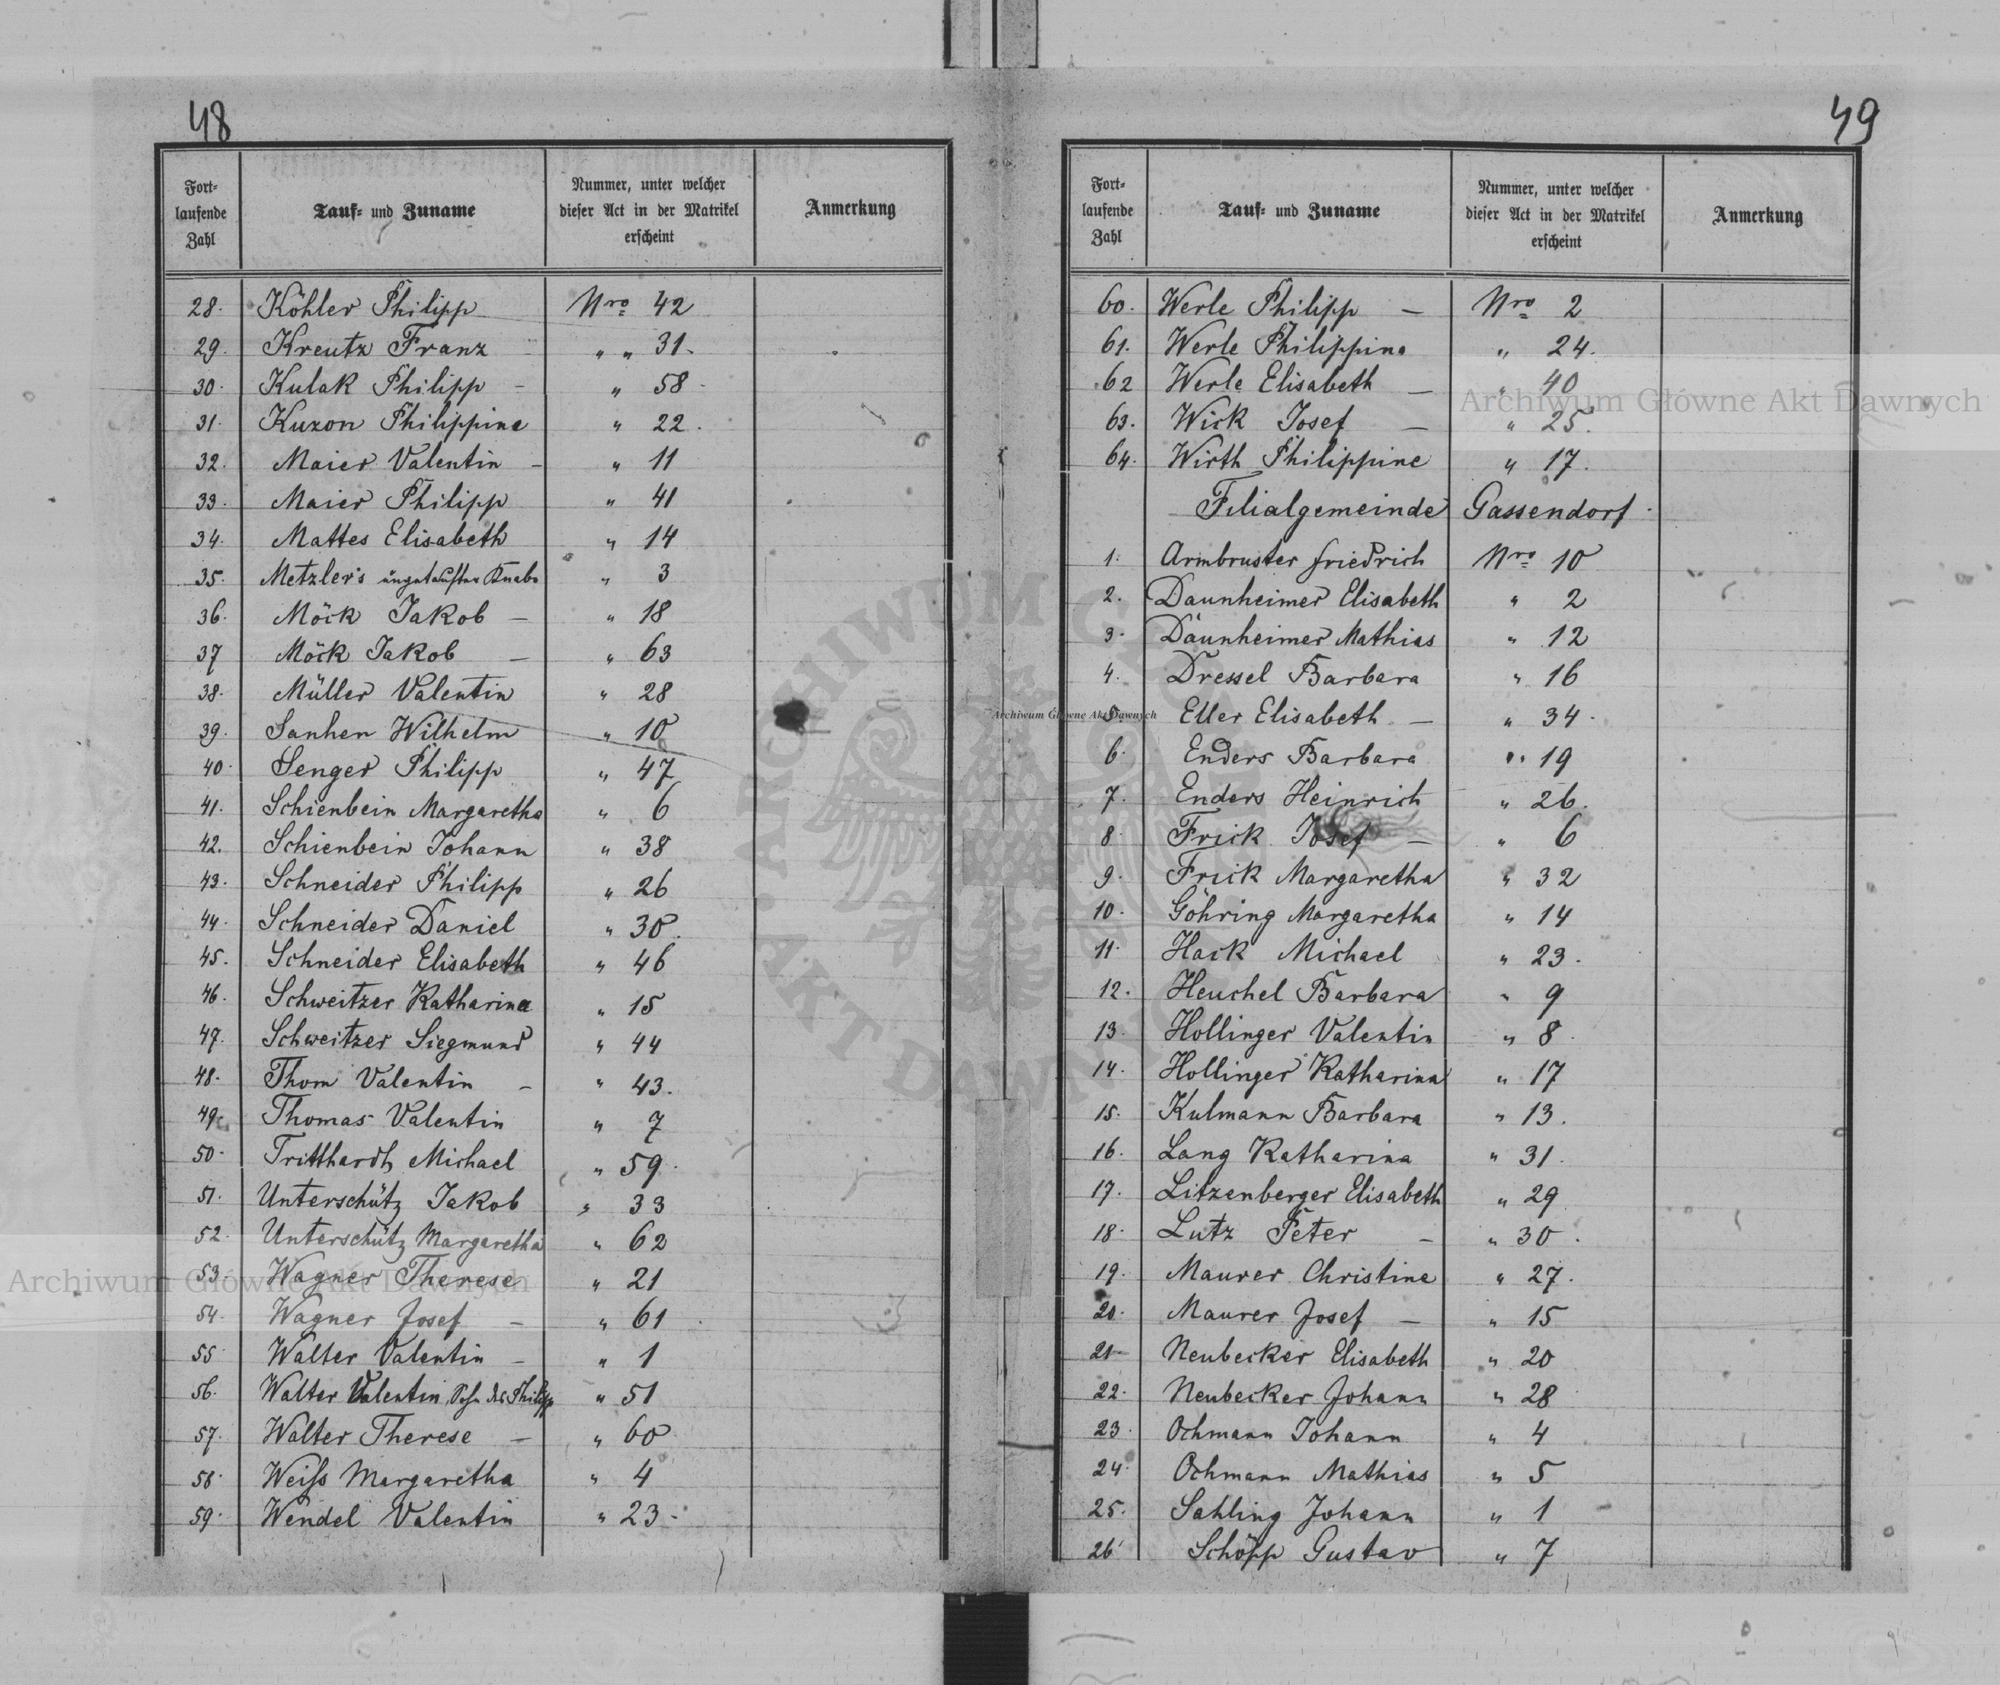 48
Fort-
laufende
Zahl
Tauf- und Zuname
Nummer, unter welcher
dieser Act in der Matrikel
erscheint
Anmerkung
28. Köhler Philipp Nro 42
29. Kreutz Franz " " 31.
30. Kulak Philipp - " 58
31. Kuzon Philippine " 22.
32. Maier Valentin - " 11
33. Maier Philipp " 41
34. Mattes Elisabeth " 14
35. Metzler's ungetaufter Knabe " 3
36. Möck Jakob - " 18
37 Möck Jakob - " 63
38. Müller Valentin " 28
39. Sanhen Wilhelm " 10
40. Senger Philipp " 47
41. Schienbein Margaretha " 6
42. Schienbein Johann " 38
43. Schneider Philipp " 26
44. Schneider Daniel " 30.
45. Schneider Elisabeth " 46
46. Schweitzer Katharina " 15
47. Schweitzer Siegmund " 44
48. Thom Valentin - " 43.
49. Thomas Valentin " 7
50. Tritthardt Michael " 59.
51. Unterschütz Jakob " 33
52. Unterschütz Margaretha " 62
53. Wagner Therese " 21
54. Wagner Josef - " 61
55 Walter Valentin - " 1
56. Walter Valentin, Sohn des Philipp " 51
57. Walter Therese - " 60
58. Weiſs Margaretha " 4
59. Wendel Valentin " 23.
49
Fort-
laufende
Zahl
Tauf- und Zuname
Nummer, unter welcher
dieser Act in der Matrikel
erscheint
Anmerkung
60. Werle Philipp - Nro 2
61. Werle Philippina " 24.
62 Werle Elisabeth - " 40
63. Wick Josef - " 25.
64. Wirth Philippine " 17.
Filialgemeinde Gassendorf.
1. Armbruster Friedrich Nro 10
2. Daunheimer Elisabeth " 2
3. Daunheimer Mathias " 12
4. Dressel Barbara " 16
5. Eller Elisabeth - " 34.
6. Enders Barbara " 19
7. Enders Heinrich " 26.
8 Frick Josef - " 6
9. Frick Margaretha " 32
10. Göhring Margaretha " 14
11. Hack Michael " 23.
12. Heuchel Barbara " 9
13. Hollinger Valentin " 8
14. Hollinger Katharina " 17
15. Kulmann Barbara " 13.
16. Lang Katharina " 31.
17. Litzenberger Elisabeth " 29
18. Lutz Peter - " 30.
19. Maurer Christine " 27.
20. Maurer Josef - " 15
21 Neubecker Elisabeth " 20
22. Neubecker Johann " 28
23. Ochmann Johann " 4
24. Ochmann Mathias " 5
25. Sahling Johann " 1
26 Schöpp Gustav " 7
Archiwum Główne Akt Dawnych
Archiwum Główne Akt Dawnych
Archiwum Główne Akt Dawnych
ARCHIWUM GŁÓWNE AKT DAWNYCH